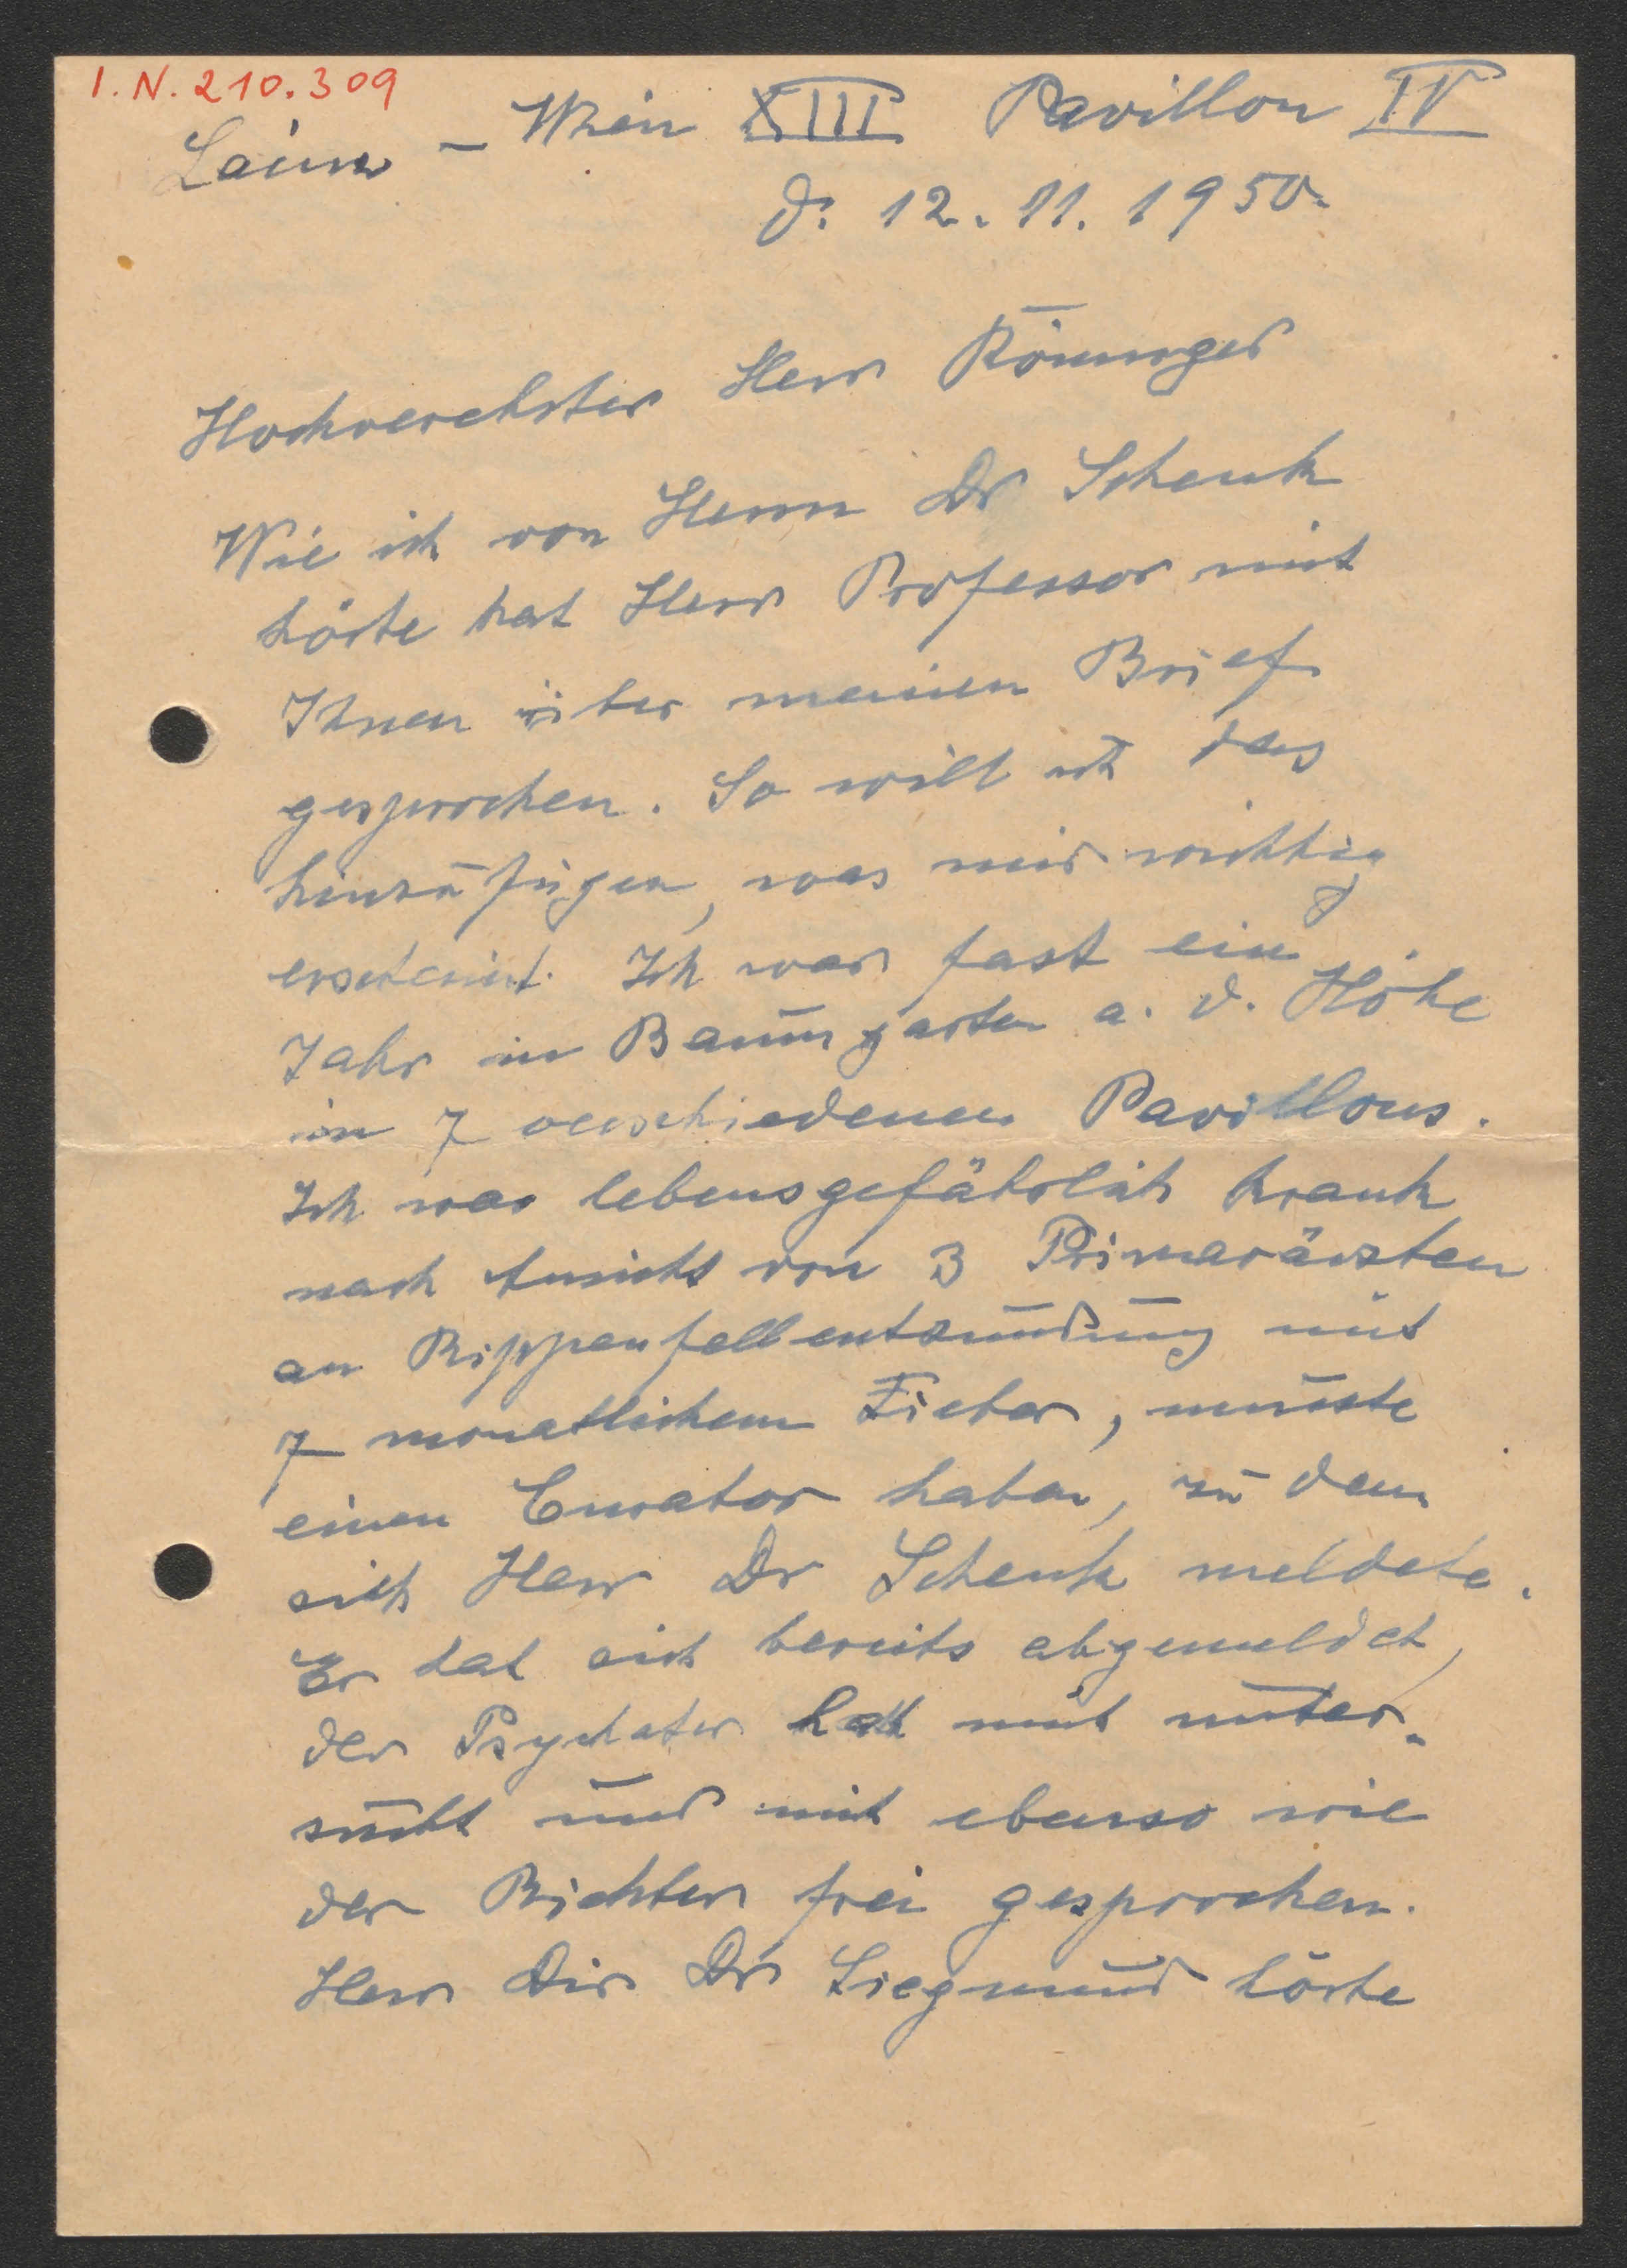 I.N. 210.309
Lainz - Wien XIII Pavillon IV
d. 12. 11. 1950.
Hochverehrter Herr Röminger
Wie ich von Herrn Dr Schenk
hörte hat Herr Professor mit
Ihnen über meinen Brief
gesprochen. So will ich das
hinzufügen, was mir wichtig
erscheint. Ich war fast ein
Jahr in Baumgarten a. d. Höhe
in 7 verschiedenen Pavillons.
Ich war lebensgefährlich krank
nach Ansicht von 3 Primarärzten
an Rippenfellentzündung mit
7 monatlichem Fieber, musste
einen Curator haben, zu dem
sich Herr Dr Schenk meldete.
Er hat sich bereits abgemeldet,
der Psychater hat mich unter-
sucht und mich ebenso wie
der Richter frei gesprochen.
Herr Dir Dr Siegmund hörte